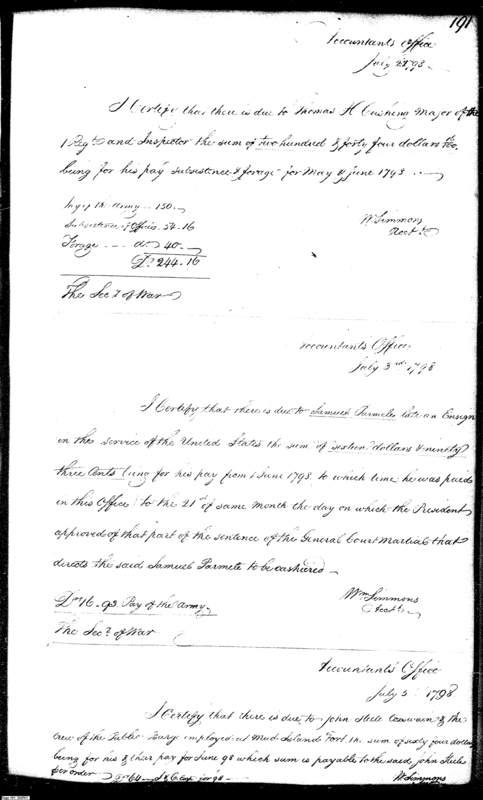 191
Accountants Office
July 1798
I Certify that there is due to Thomas H Cushing Major of the
1 Regt. and Inspector the sum of two hundred & forty four dollars 16/100
being for his pay subsistence & forage for May & June 1798
Pay of the Army .. 150 ..
Subsistence of Officers . 54.16
Forage ... do 40 ..
Drs 244.16
Wm Simmons
Acct.
The Secy. of War
Accountants Office
July 3rd 1798
I Certify that there is due to Samuel Parmele late an Ensign
in the service of the United States the sum of sixteen dollars & ninety
three Cents being for his pay from 1 June 1798. to which time he was paid
in this Office to the 21st of same month the day on which the President
approved of that part of the sentence of the General Court Martial that
directs the said Samuel Parmele to be cashiered
Wm Simmons
Acct.
Drs 16.93 Pay of the Army
The Secy. of War
Accountants Office
July 5 1798
I Certify that there is due to John Steele Coxswain & the
Crew of the Public Barge employed at Mud Island Fort the sum of sixty four dollars
being for his & their pay for June 98 which sum is payable to the said John Steele
or order Drs 64 for 98
Wm Simmons